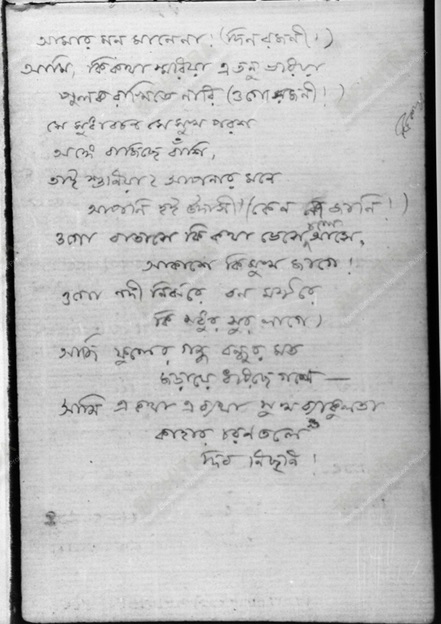 আমার মন মানে না! (দিন রজনী!)
আমি, কি কথা স্মরিয়া এ তনু ভরিয়া
পুলক রাখিতে নারি (ওগো সজনী!)
সে সুধাবচন সে সুখ পরশ
অঙ্গে বাজিছে বাঁশি,
তাই শুনিয়া আপনার মনে
আপনি হই উদাসী! (কেন না জানি!)
ওগো বাতাসে কি কথা ভেসে চলে আসে,
আকাশে কি মুখ জাগে!
ওগো নদী নির্ঝরে বন মর্মরে
কি মধুর সুর লাগে!
আজি ফুলের গন্ধ বন্ধুর মত
জড়ায়ে ধরিছে গলে —
আমি এ কথা এ ব্যথা সুখ ব্যাকুলতা
কাহার চরণতলে
দিব নিছনি!